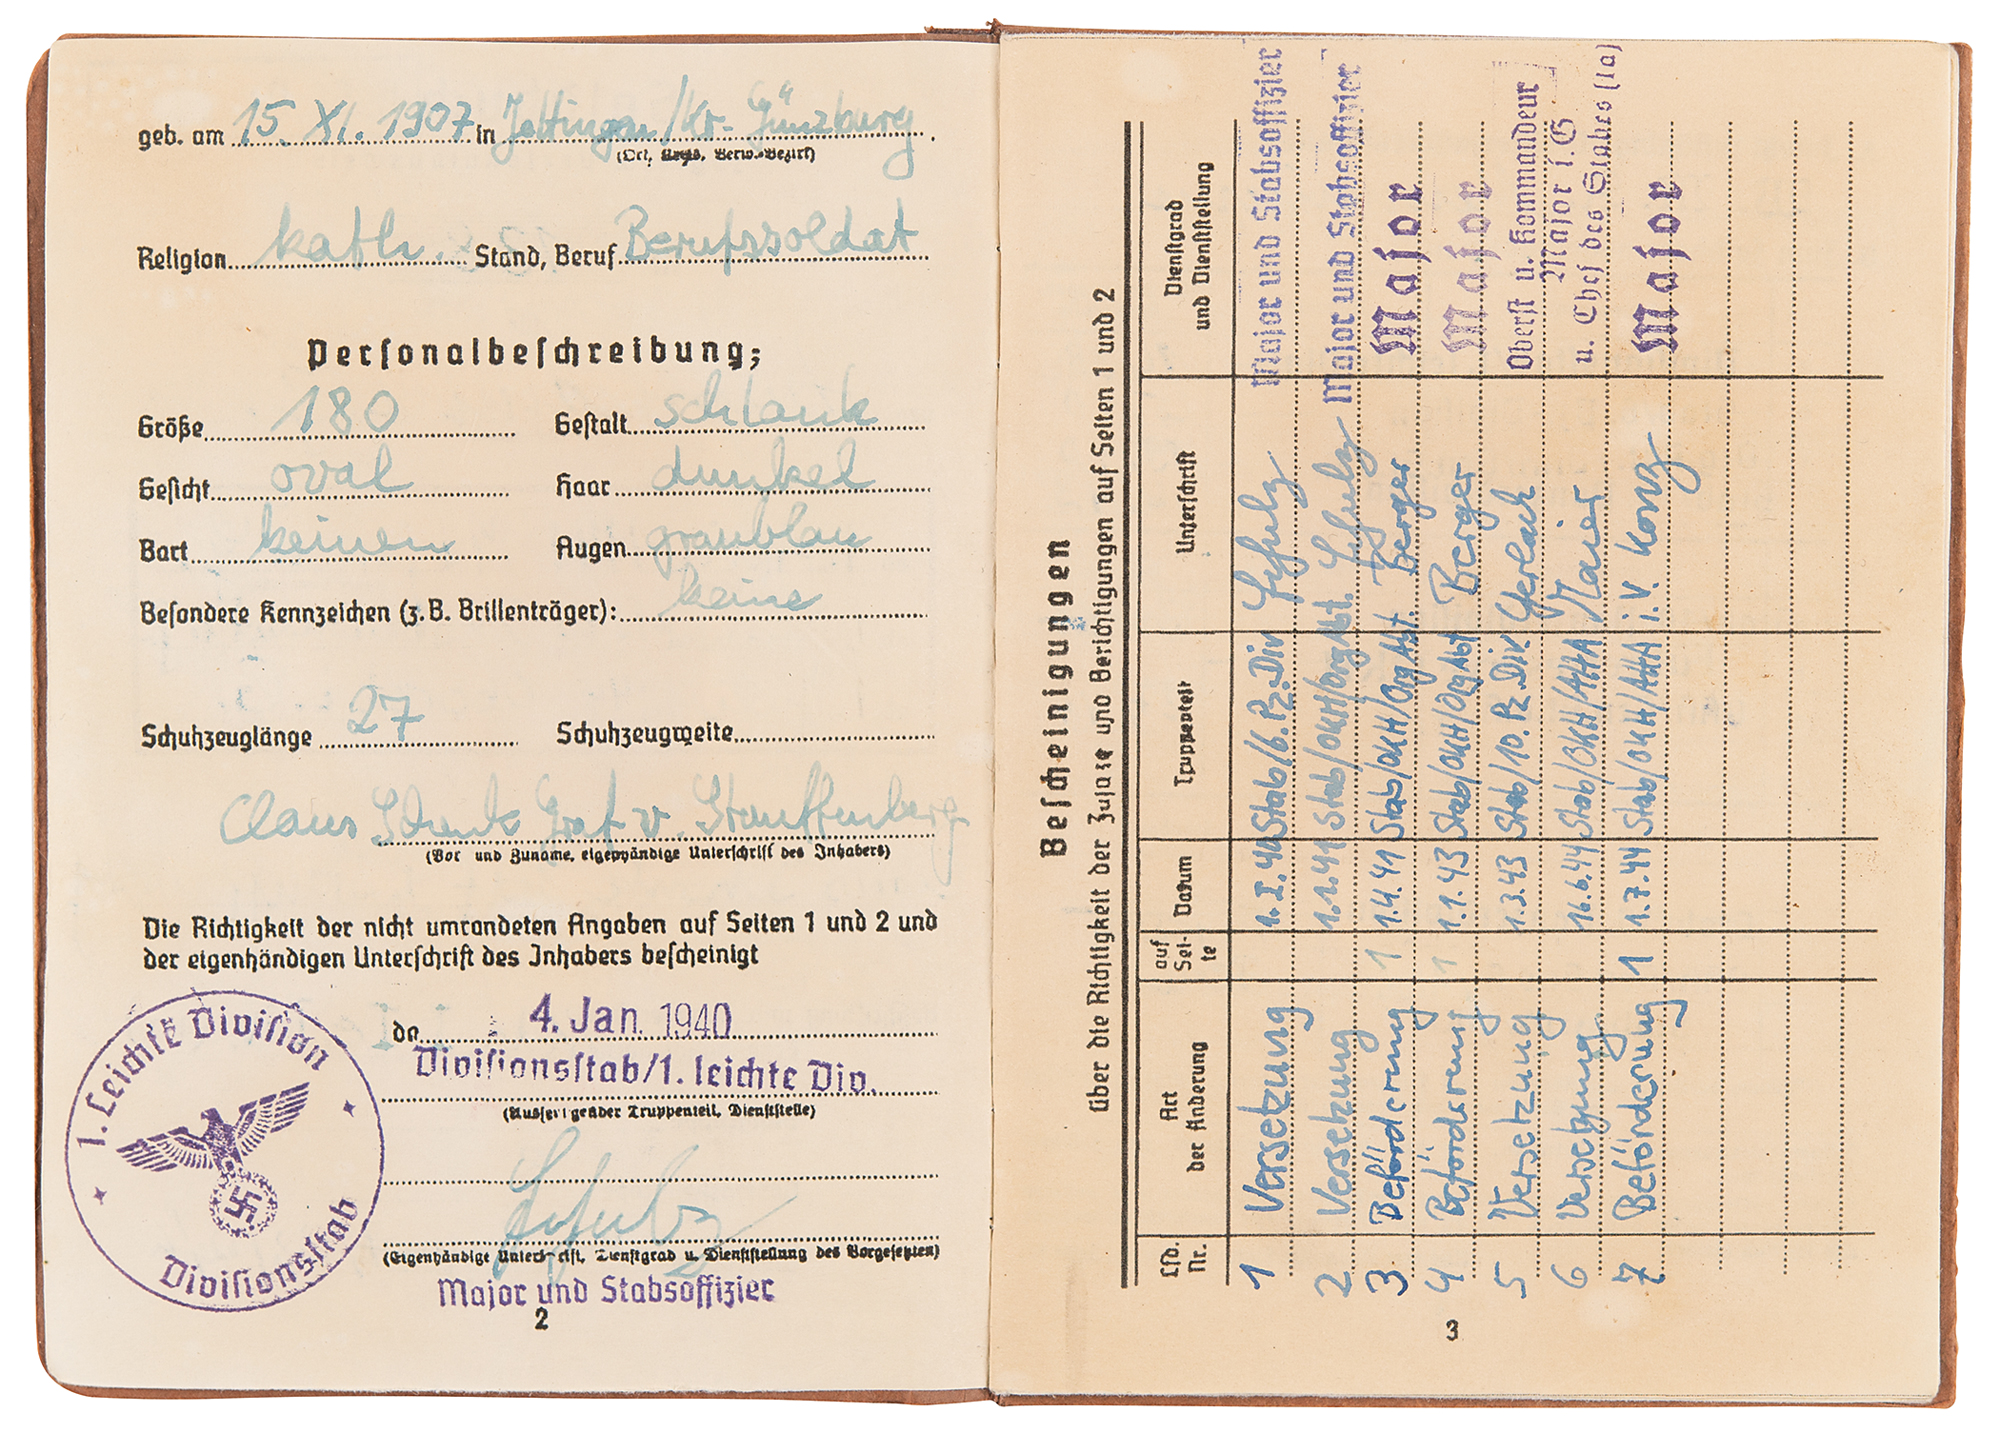 geb. am 15. XI. 1907 in Jettingen/Kr. Günzburg.
(Ort, Kreis, Verw.-Bezirk)
Religion kath. Stand, Beruf Berufssoldat
Personalbeschreibung;
Größe 180 Gestalt schlank
Gesicht oval Haar dunkel
Bart keinen Augen graublau
Besondere Kennzeichen (z.B. Brillenträger): keine
Schuhzeuglänge 27 Schuhzeugweite
Claus Schenk Graf v. Stauffenberg
(Vor und Zuname, eigenhändige Unterschrift des Inhabers)
Die Richtigkeit der nicht umrandeten Angaben auf Seiten 1 und 2 und
der eigenhändigen Unterschrift des Inhabers bescheinigt
1. Leichte Division
Divisionsstab
de 4. Jan. 1940
Divisionsstab/1. leichte Div.
(Ausfertigender Truppenteil, Dienststelle)
Schulz
(Eigenhändige Unterschrift, Dienstgrad u. Dienststellung des Vorgesetzten)
Major und Stabsoffizier
2
Bescheinigungen
über die Richtigkeit der Zusätze und Berichtigungen auf Seiten 1 und 2
Lfd. Nr. Art der Änderung auf Seite Datum Truppenteil Unterschrift Dienstgrad und Dienststellung
1 Versetzung 1.I.40 Stab/6.Pz.Div Schulz Major und Stabsoffizier
2 Versetzung 1.1.41 Stab/OKH/OrgAbt. Schulz Major und Stabsoffizier
3 Beförderung 1 1.4.41 Stab/OKH/OrgAbt. Berger Major
4 Beförderung 1 1.1.43 Stab/OKH/OrgAbt Berger Major
5 Versetzung 1.3.43 Stab/10.Pz.Div Gerlach Oberst u. Kommandeur
6 Versetzung 16.6.44 Stab/OKH/AHA Maier Major i.G
u. Chef des Stabes (Ia)
7 Beförderung 1 1.7.44 Stab/OKH/AHA i.V. Konz Major
3